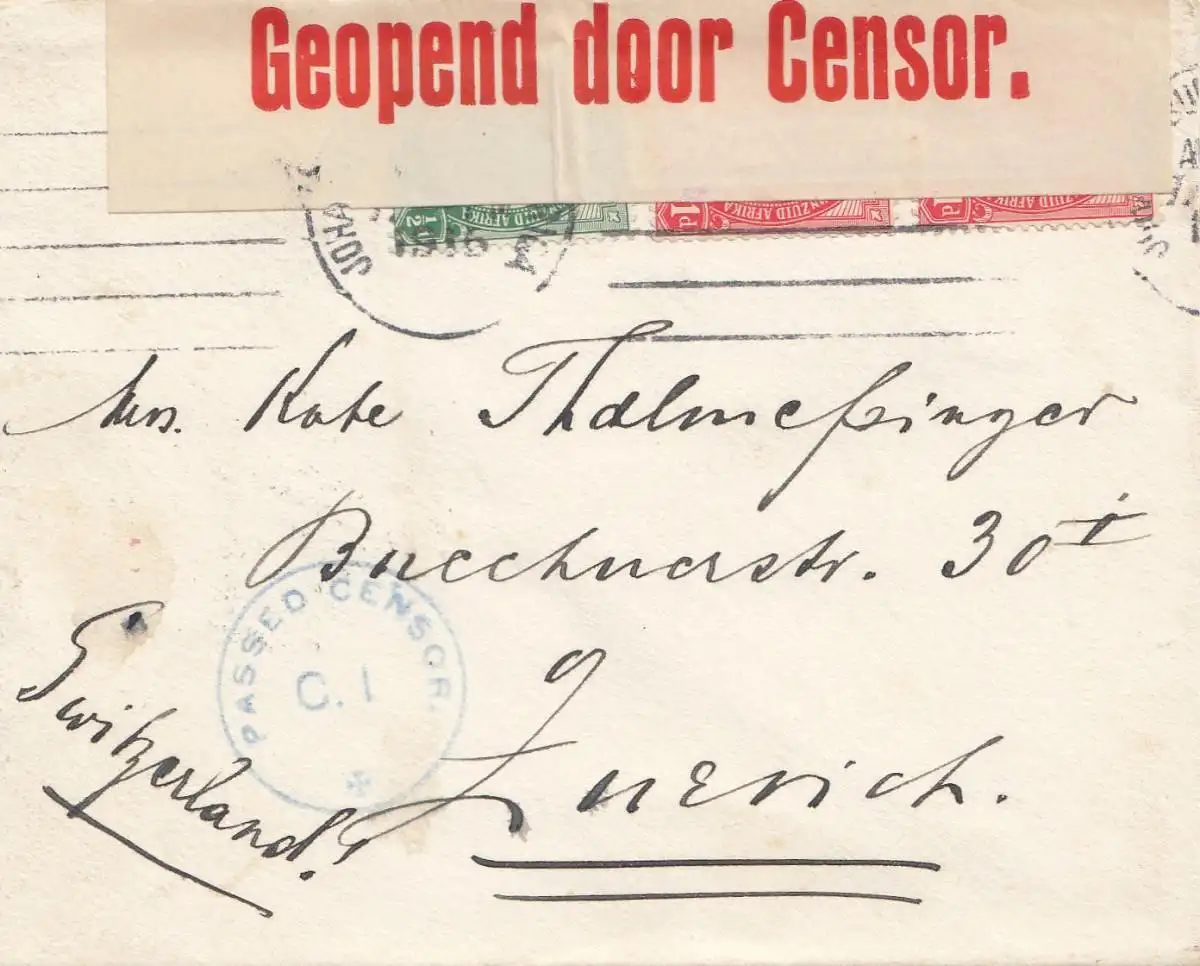 Geopend door Censor.
½ ZUID AFRIKA
1d ZUID AFRIKA
d ZUID AFRIKA
JOHA
Mrs. Kate Thalmeßinger
Buechnerstr. 30 I
PASSED CENSOR.
C. 1
Zuerich.
Switzerland.